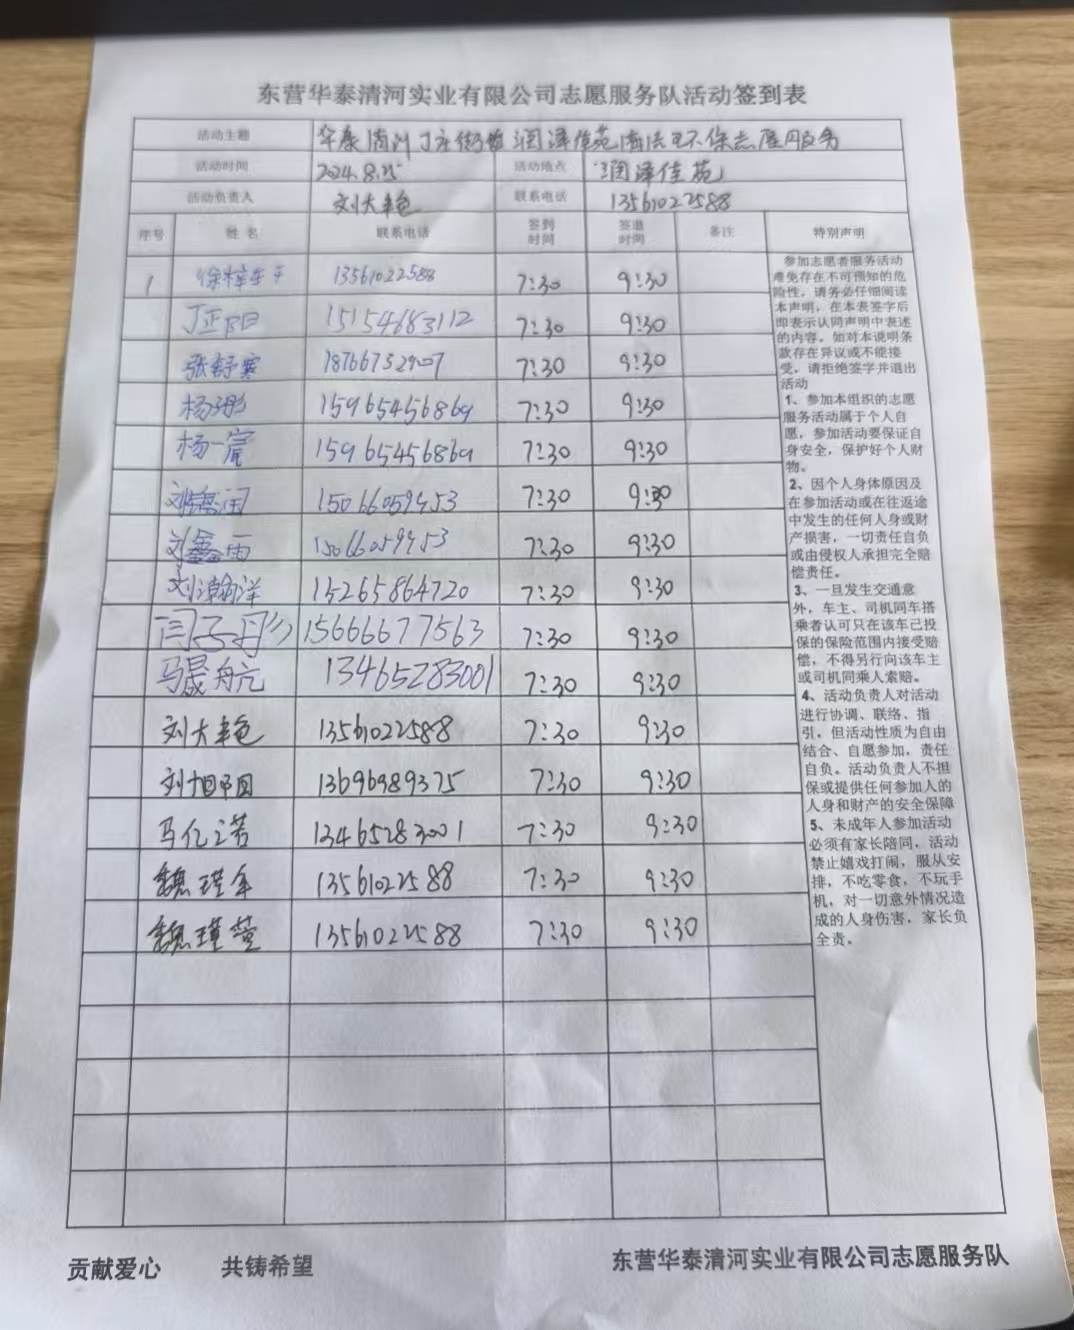 东营华泰清河实业有限公司志愿服务队活动签到表
活动主题 华泰清河丁庄街道润泽佳苑清洁环保志愿服务
活动时间 2024.8.25 活动地点 润泽佳苑
活动负责人 刘大艳 联系电话 13561022588
序号 姓名 联系电话 签到时间 签退时间 备注 特别声明
1 徐梓 13561022588 7:30 9:30
丁正阳 15154683112 7:30 9:30
张舒 18766752907 7:30 9:30
杨彤 15965456869 7:30 9:30
杨一 15965456869 7:30 9:30
刘 15066059453 7:30 9:30
刘鑫雨 15066059453 7:30 9:30
刘瀚洋 15265864720 7:30 9:30
闫子丹 15666677563 7:30 9:30
马晟航 13465283001 7:30 9:30
刘大艳 13561022588 7:30 9:30
刘旭阳 13696989375 7:30 9:30
马亿诺 13465283001 7:30 9:30
魏瑾 13561022588 7:30 9:30
魏瑾萱 13561022588 7:30 9:30
参加志愿者服务活动
难免存在不可预知的危
险性，请务必仔细阅读
本声明，在本表签字后
即表示认同声明中表述
的内容。如对本说明条
款存在异议或不能接
受，请拒绝签字并退出
活动
1、参加本组织的志愿
服务活动属于个人自
愿，参加活动要保证自
身安全，保护好个人财
物。
2、因个人身体原因及
在参加活动或在往返途
中发生的任何人身或财
产损害，一切责任自负
或由侵权人承担完全赔
偿责任。
3、一旦发生交通意
外，车主、司机同车搭
乘者认可只在该车已投
保的保险范围内接受赔
偿，不得另行向该车主
或司机同乘人索赔。
4、活动负责人对活动
进行协调、联络、指
引，但活动性质为自由
结合、自愿参加，责任
自负。活动负责人不担
保或提供任何参加人的
人身和财产的安全保障
5、未成年人参加活动
必须有家长陪同，活动
禁止嬉戏打闹，服从安
排，不吃零食，不玩手
机，对一切意外情况造
成的人身伤害，家长负
全责。
贡献爱心 共铸希望 东营华泰清河实业有限公司志愿服务队